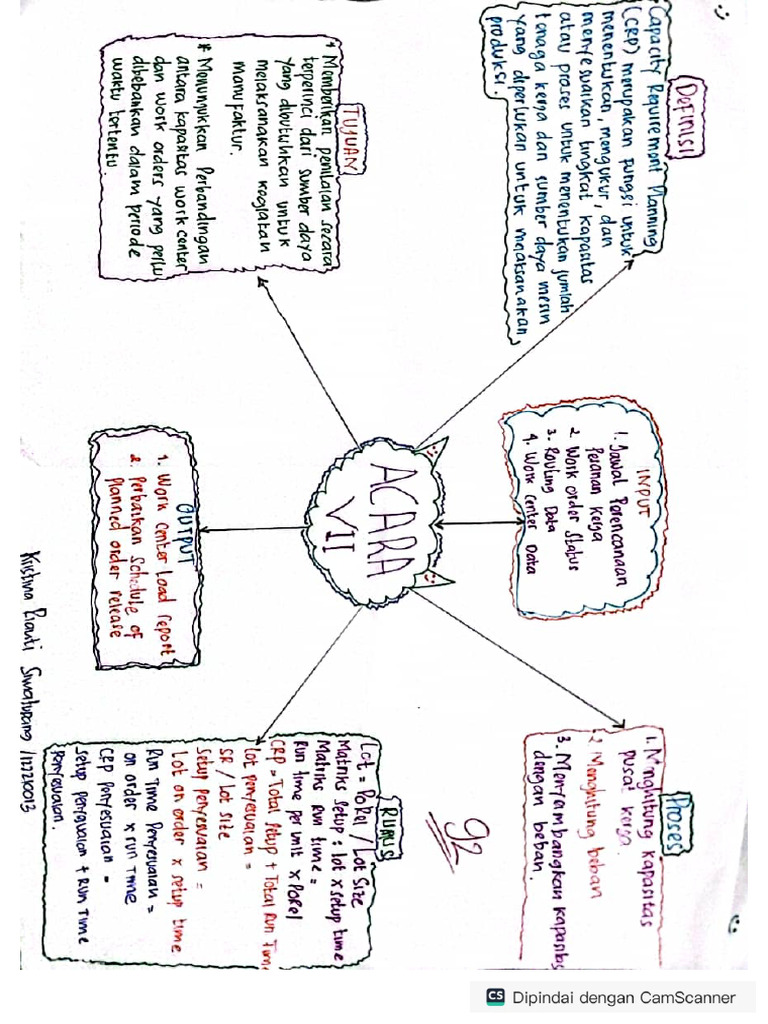 Definisi
Capacity Requirement Planning
(CRP) merupakan fungsi untuk
menentukan, mengukur, dan
menyesuaikan tingkat kapasitas
atau proses untuk menentukan jumlah
tenaga kerja dan sumber daya mesin
yang diperlukan untuk melaksanakan
produksi.
INPUT
1. Jadwal Perencanaan
Pesanan Kerja
2. Work Order Status
3. Routing Data
4. Work Center Data
Proses
1. Menghitung Kapasitas
pusat kerja.
2. Menghitung beban
3. Menyambangkan kapasitas
dengan beban.
TUJUAN
* Memberikan penilaian secara
terperinci dari sumber daya
yang dibutuhkan untuk
melaksanakan kegiatan
manufaktur.
* Menunjukkan Perbandingan
antara kapasitas work center
dan work orders yang perlu
dibebankan dalam periode
waktu tertentu.
ACARA
VII
OUTPUT
1. Work Center Load report
2. Perbaikan Schedule of
planned order release
92
RUMUS
Lot = PORel / Lot Size
Matriks Setup = lot x setup time
Matriks Run time =
Run time per unit x PORel
CRP = Total Setup + Total Run Time
Lot penyesuaian =
SR / Lot size
Setup Penyesuaian =
Lot on order x setup time
Run Time Penyesuaian =
on order x run time
CRP Penyesuaian =
Setup penyesuaian + Run Time
Penyesuaian.
CS Dipindai dengan CamScanner